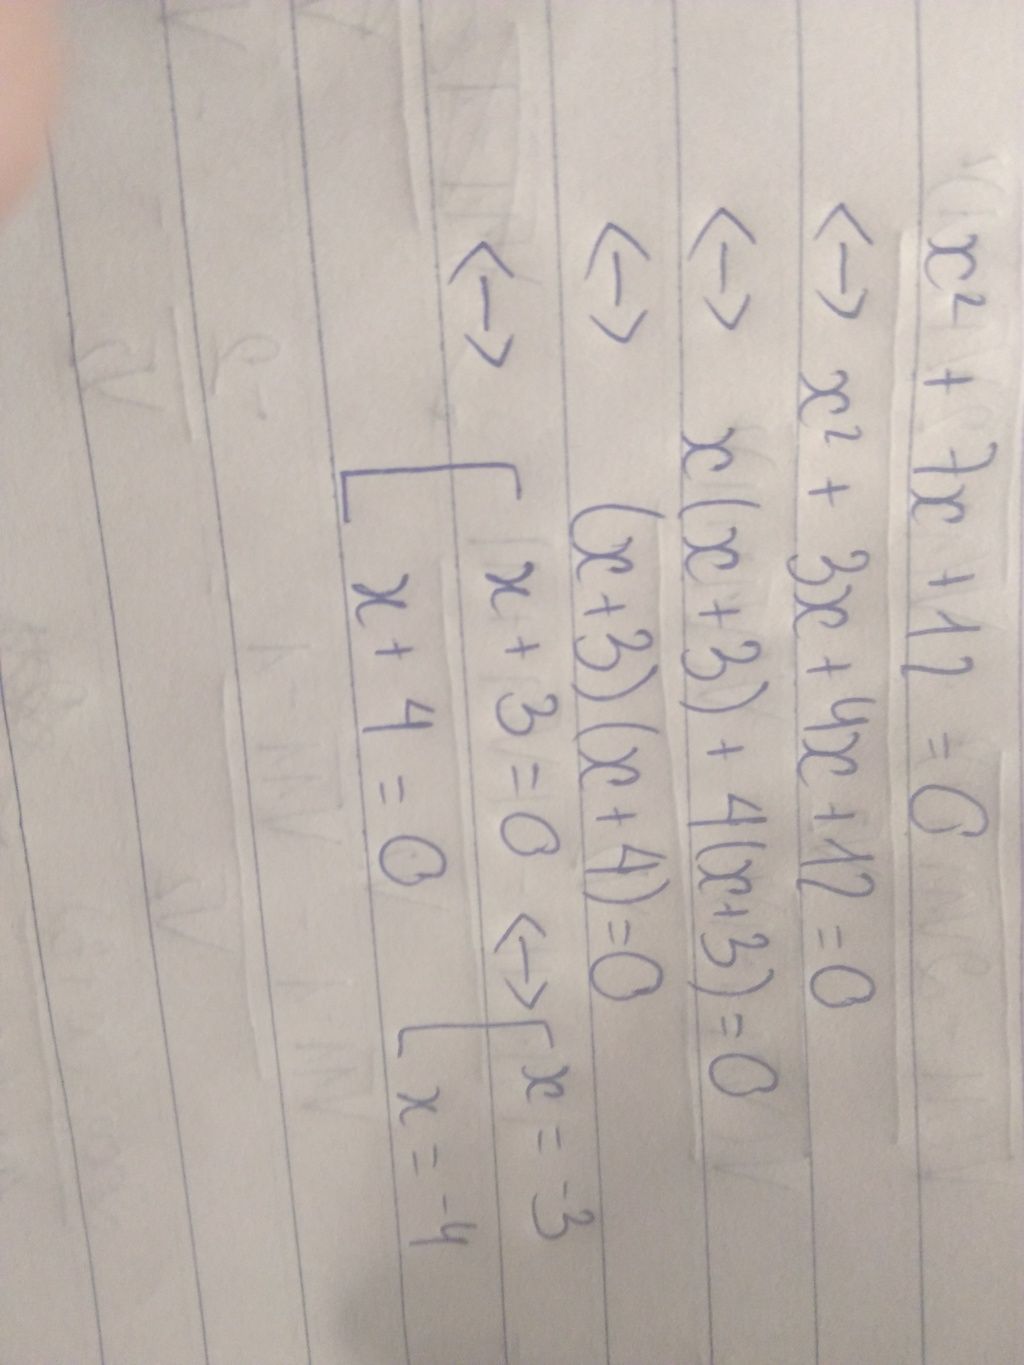 x² + 7x + 12 = 0
<-> x² + 3x + 4x + 12 = 0
<-> x(x+3) + 4(x+3) = 0
<-> (x+3)(x+4) = 0
<-> [ x + 3 = 0 <-> [ x = -3
x + 4 = 0 x = -4